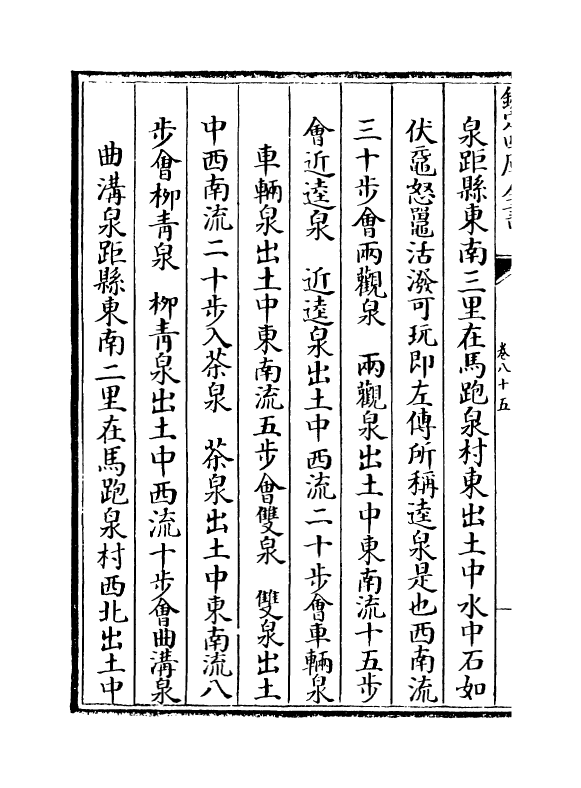 欽定四庫全書
卷八十五
泉距縣東南三里在馬跑泉村東出土中水中石如
伏黿怒鼉活潑可玩即左傳所稱逵泉是也西南流
三十步會兩觀泉　兩觀泉出土中東南流十五步
會近逵泉　近逵泉出土中西流二十步會車輛泉
車輛泉出土中東南流五步會雙泉　雙泉出土
中西南流二十步入茶泉　茶泉出土中東南流八
步會柳青泉　柳青泉出土中西流十步會曲溝泉
曲溝泉距縣東南二里在馬跑泉村西北出土中